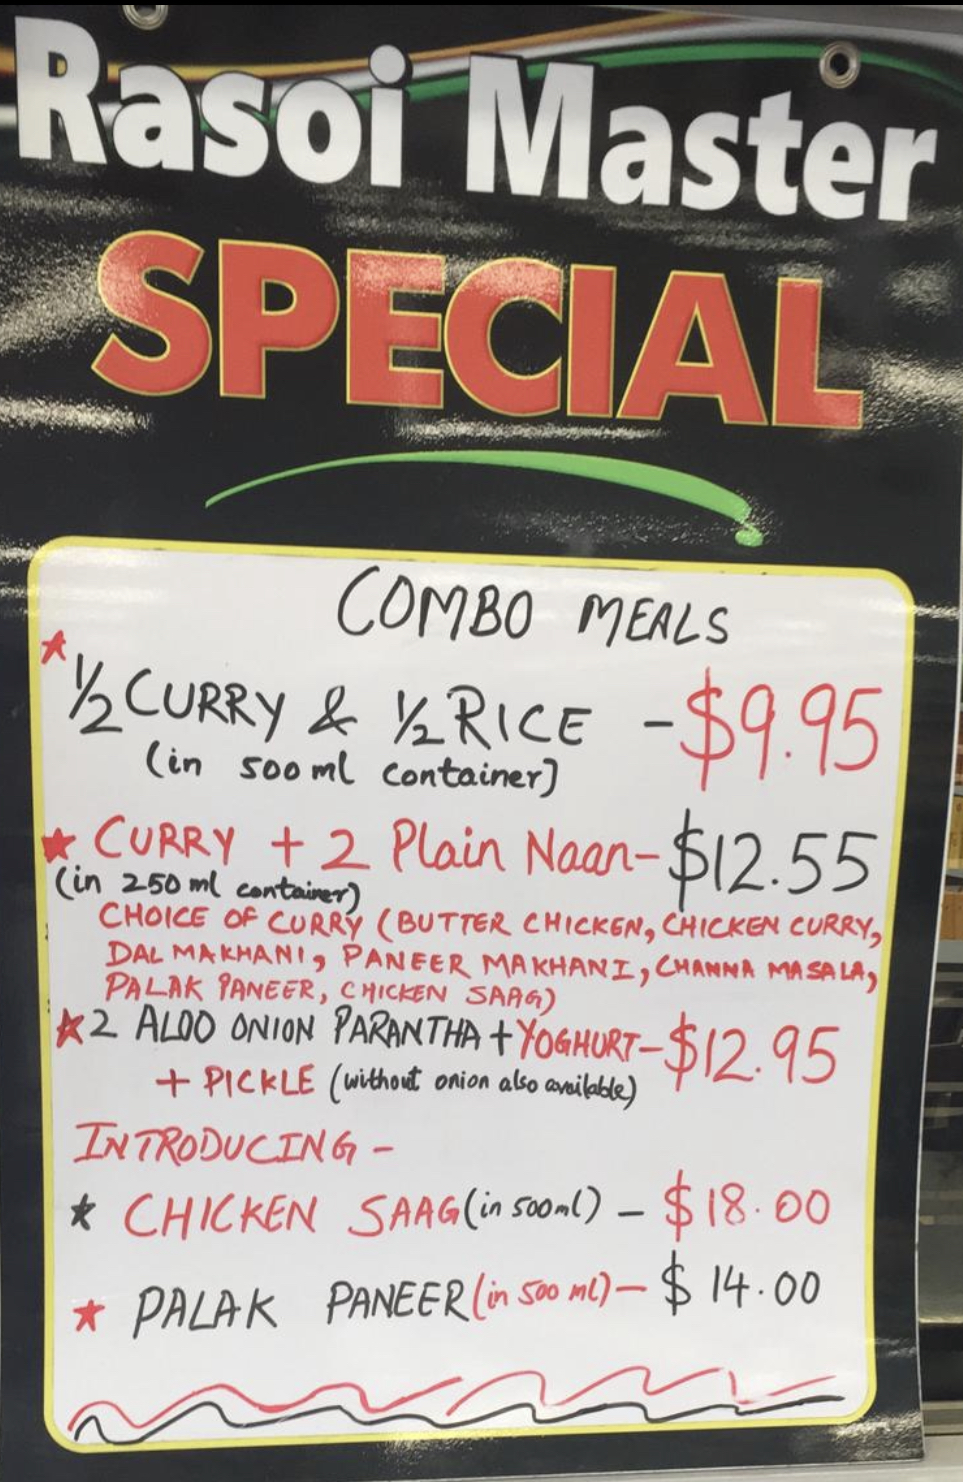 Rasoi Master
SPECIAL
COMBO MEALS
½ CURRY & ½ RICE - $9.95
(in 500 ml container)
CURRY + 2 Plain Naan- $12.55
(in 250 ml container)
CHOICE OF CURRY (BUTTER CHICKEN, CHICKEN CURRY,
DAL MAKHANI, PANEER MAKHANI, CHANNA MASALA,
PALAK PANEER, CHICKEN SAAG)
2 ALOO ONION PARANTHA + YOGHURT- $12.95
+ PICKLE (without onion also available)
INTRODUCING -
CHICKEN SAAG (in 500ml) - $18.00
PALAK PANEER (in 500 ml) - $14.00